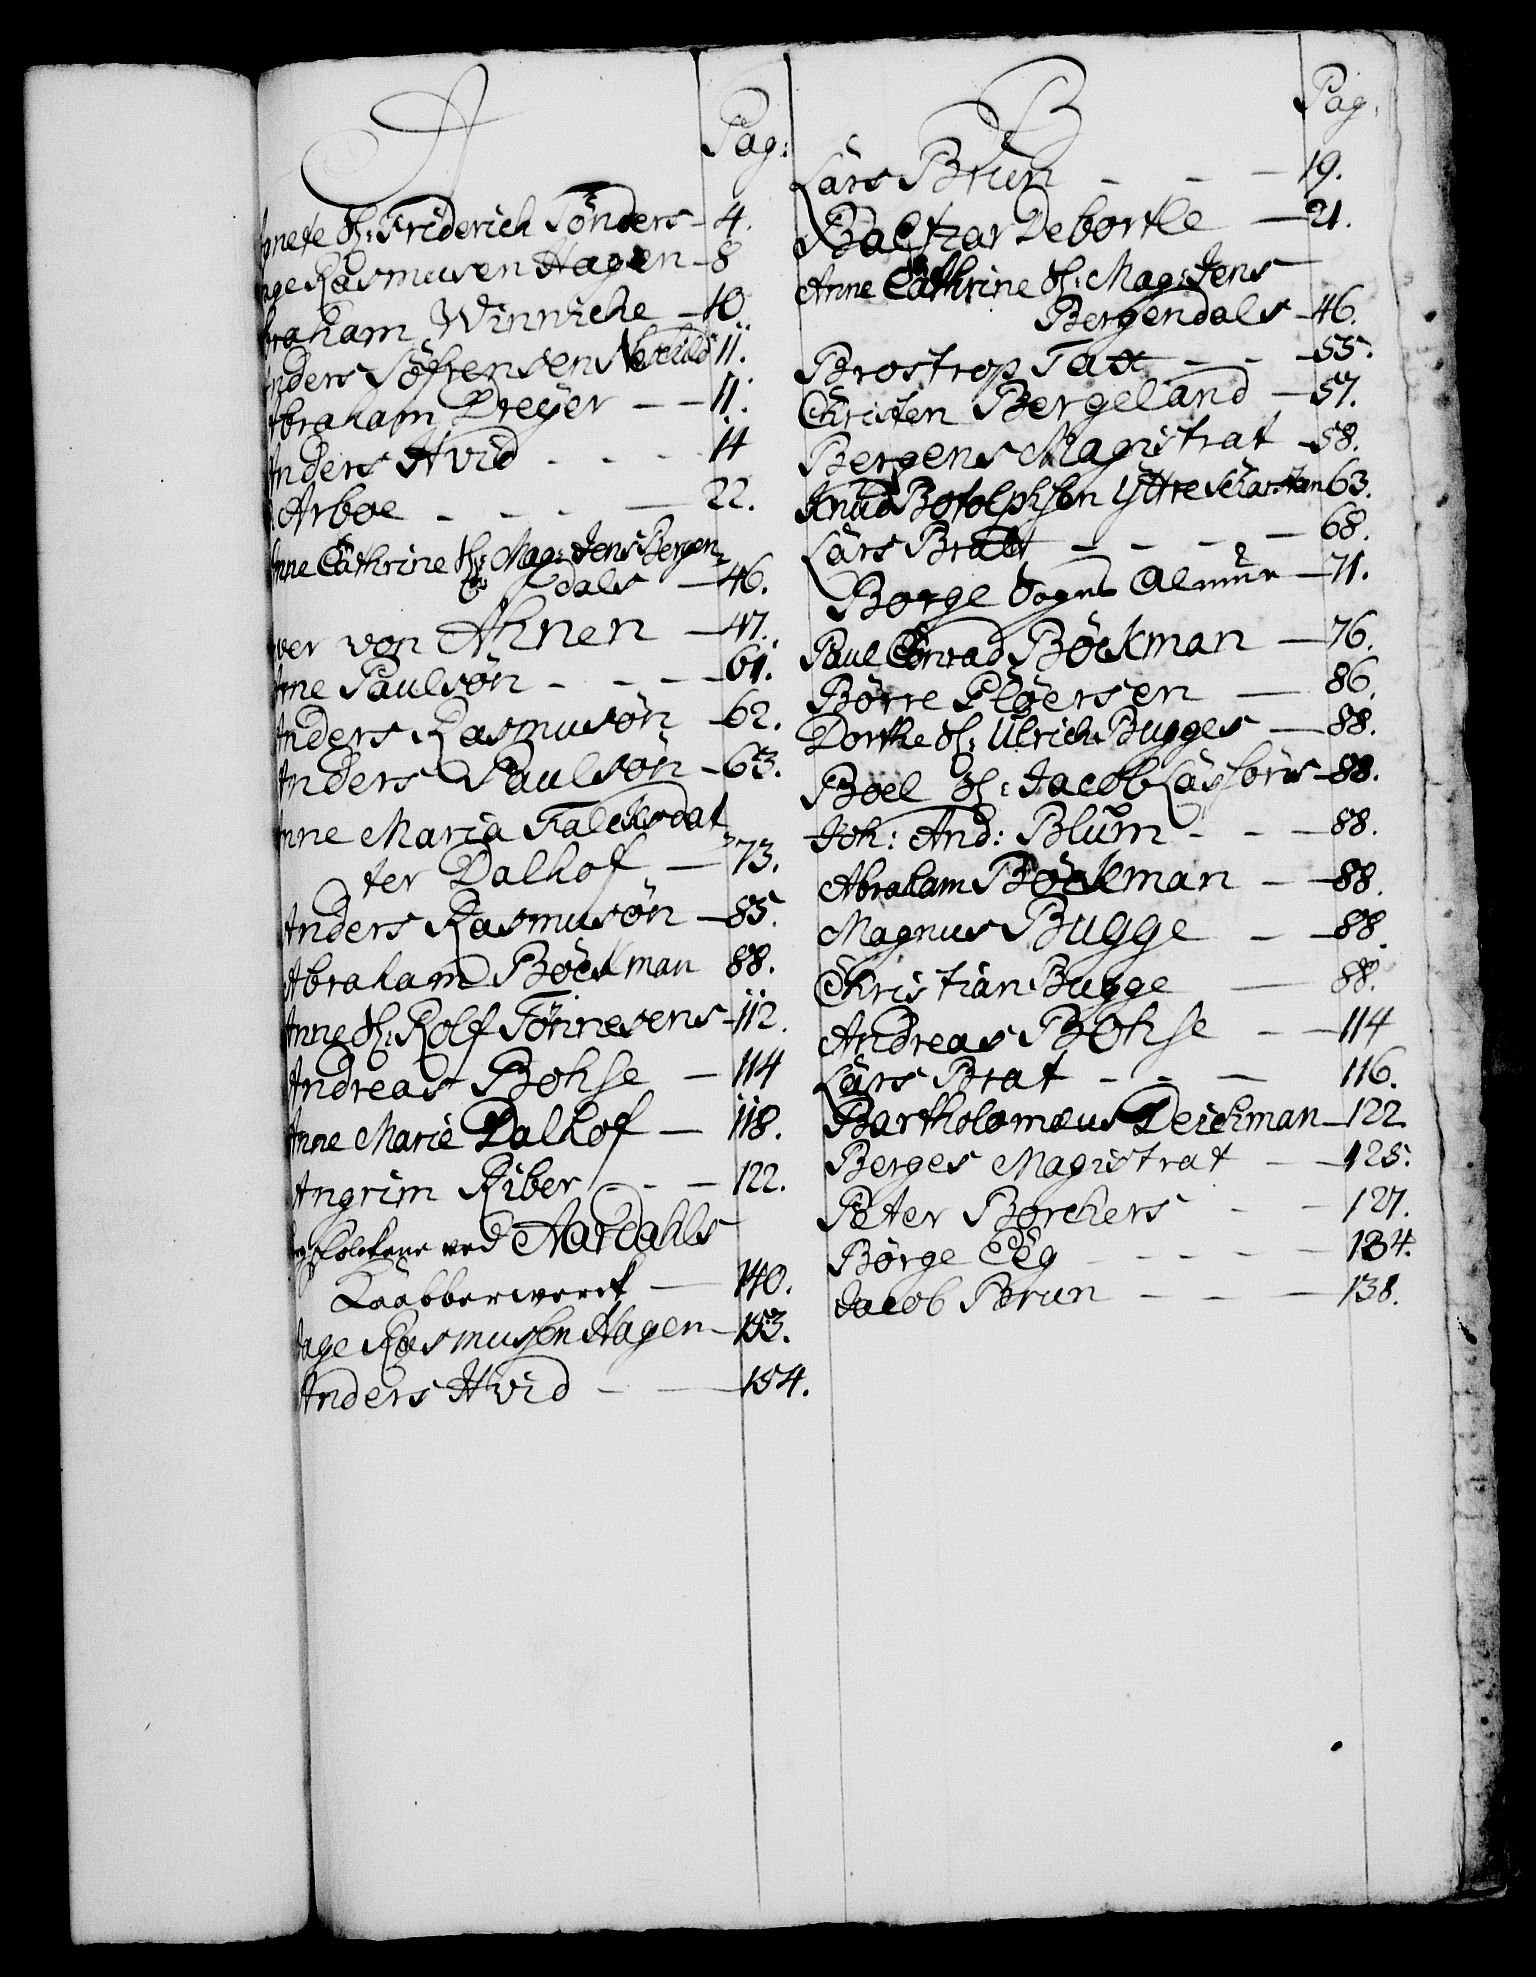 A
Pag:
Agnete Sl: Friderich Tönders 4.
Aage Rasmusen Hagen 8
Abraham Winniche 10
Anders Söfrensen 11.
Abraham Dreÿer 11.
Anders Hvid 14
Arboe 22.
Anne Cathrine Sl: Mag: Jens Bergen
dals 46.
von Ahnen 47.
Arne Paulsön 61.
Anders Rasmusön 62.
Anders Paulsön 63.
Anne Maria Falchsdat
ter Dalhof 73.
Anders Rasmusön 85.
Abraham Böckman 88.
Anne Sl: Rolf Tönnesens 112.
Andreas Bohse 114
Anne Marie Dalhof 118.
Angrim Riber 122.
ved Aardahls
Kaabberwerck 140.
Aage Rasmussen Hagen 153.
Anders Hvid 154.
B
Pag.
Lars Brun 19.
Baltzar Debortle 21.
Anne Cathrine Sl: Mag: Jens
Bergendals 46.
Brostrop Tax 55.
Christen Bergeland 57.
Bergens Magistrat 58.
Knud Botolphsen Ÿttre 63.
Lars Bratt 68.
Borge Sogns Almue 71.
Paul Conrad Böckman 76.
Börre Pløersen 86.
Dorthe Sl: Ulrich Bugges 88.
Boel Sl: Jacob Lassøns 88.
Joh: And: Blum 88.
Abraham Böckman 88.
Magnus Bugge 88.
Christian Bugge 88.
Andreas Bohse 114
Lars Brat 116.
Bartholomæus Deichman 122
Berges Magistrat 125.
Peter Borchers 127.
Börge Eeg 134.
Jacob Brun 138.